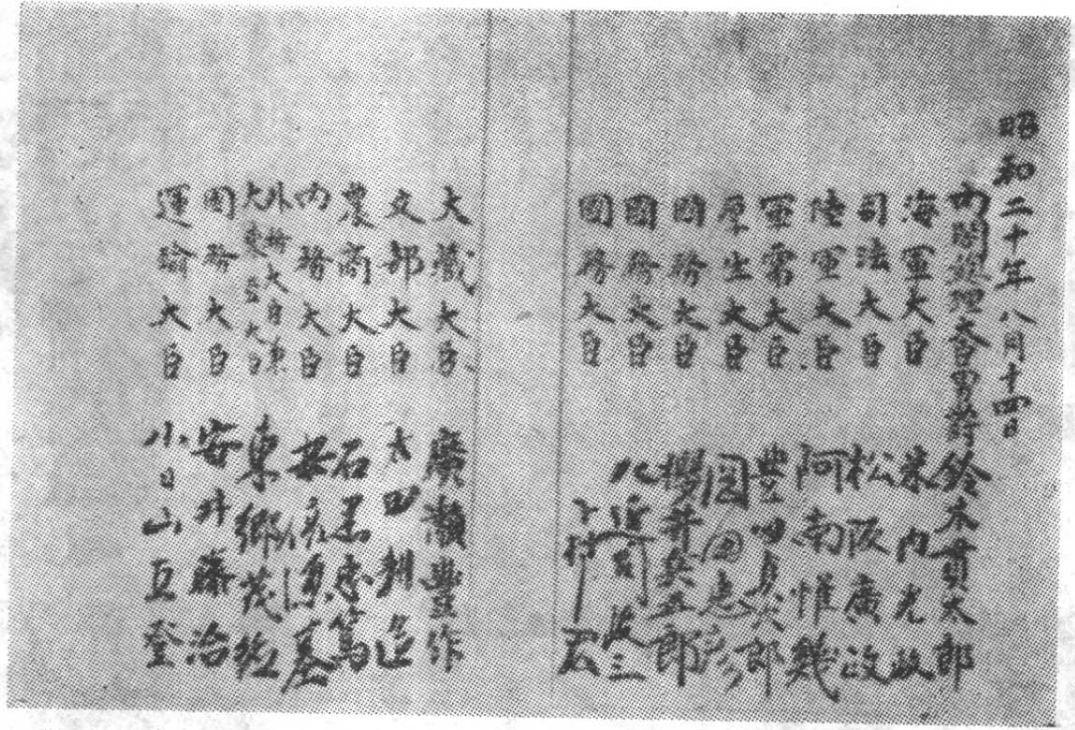 昭和二十年八月十四日
内閣總理大臣男爵 鈴木貫太郎
海軍大臣 米内光政
司法大臣 松阪廣政
陸軍大臣 阿南惟幾
軍需大臣 豊田貞次郎
厚生大臣 岡田忠彦
國務大臣 櫻井兵五郎
國務大臣 左近司政三
國務大臣 下村宏
大藏大臣 廣瀬豊作
文部大臣 太田耕造
農商大臣 石黒忠篤
内務大臣 安倍源基
外務大臣 東郷茂徳
大東亞大臣
國務大臣 安井藤治
運輸大臣 小日山直登